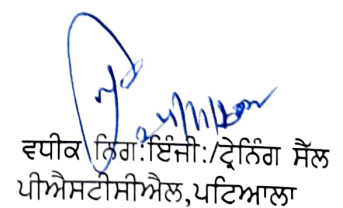 ਵਧੀਕ ਨਿਗ:ਇੰਜੀ:/ਟ੍ਰੇਨਿੰਗ ਸੈੱਲ
ਪੀਐਸਟੀਸੀਐਲ,ਪਟਿਆਲਾ